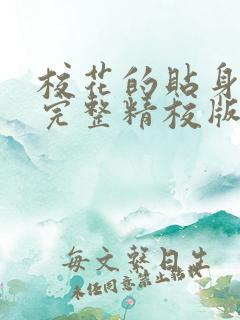 校花的贴身
完整精校版
每文聱日生
未经同意禁止转载